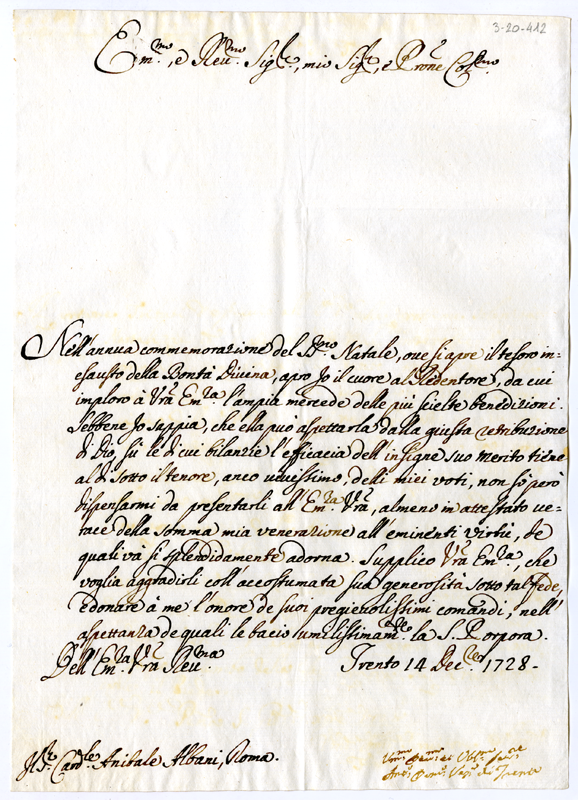 3-20-412
Em.mo, e Reu.mo Sig.re, mio Sig.re, e Prone Col.mo
Nell'annua commemorazione del S.mo Natale, oue si apre il tesoro in-
esausto della Bontà Diuina, apro Io il cuore al Redentore, da cui
imploro à Vra Em.za l'ampia mercede delle più scielte benedizioni.
Sebbene Io sappia, che ella può aspettarla dalla giusta retribuzione
di Dio, sù le di cui bilanzie l'efficacia dell'insigne suo merito tiene
al di sotto il tenore, anco uiuissimo, delli miei voti, non sò però
dispensarmi da presentarli all'Em.za Vra, almeno in attestato ue-
race della somma mia venerazione all'eminenti virtù, de
quali và sì splendidamente adorna. Supplico Vra Em.za, che
voglia aggradirli coll'accostumata sua generosità sotto tal fede,
e donare à me l'onore de suoi pregieuolissimi comandi, nell'
aspettanza de quali le bacio umilissinam.te la S. Porpora.
Dell'Em.za Vra Reu.ma Trento 14 Dec.re 1728.
Sig.r Card.le Anibale Albani, Roma.
Um.mo Deu.mo et Obl.mo Ser.re
Ant.o Dom.o Vesc.o di Trento